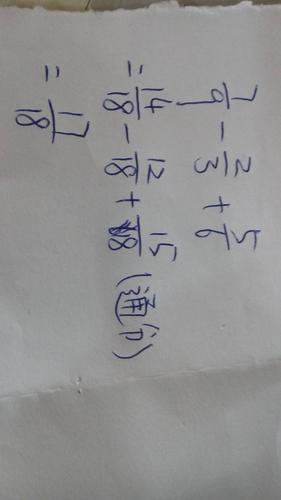 7/9 - 2/3 + 5/6
= 14/18 - 12/18 + 15/18 (通分)
= 17/18